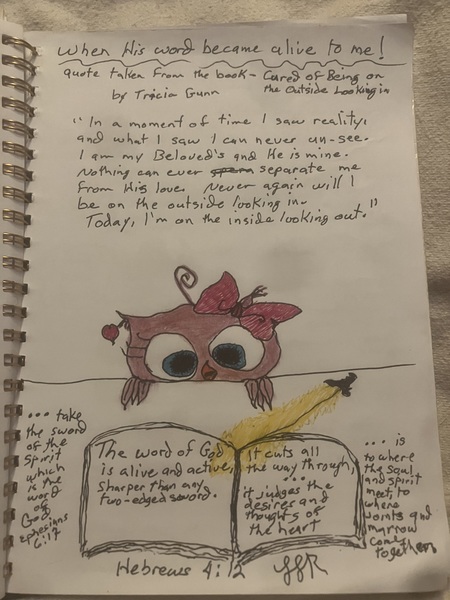 When His word became alive to me!
quote taken from the book - Cured of Being on
the Outside Looking in
by Tricia Gunn
"In a moment of time I saw reality,
and what I saw I can never un-see.
I am my Beloved's and He is mine.
Nothing can ever separate me
from His love. Never again will I
be on the outside looking in.
Today, I'm on the inside looking out."
... take
the sword
of the
Spirit
which
is the
word
of
God
Ephesians
6:17
The word of God
is alive and active,
sharper than any
two-edged sword.
It cuts all
the way through,
...
it judges the
desires and
thoughts of
the heart
... is
to where
the soul
and spirit
meet, to
where
joints and
marrow
come
together
Hebrews 4:12